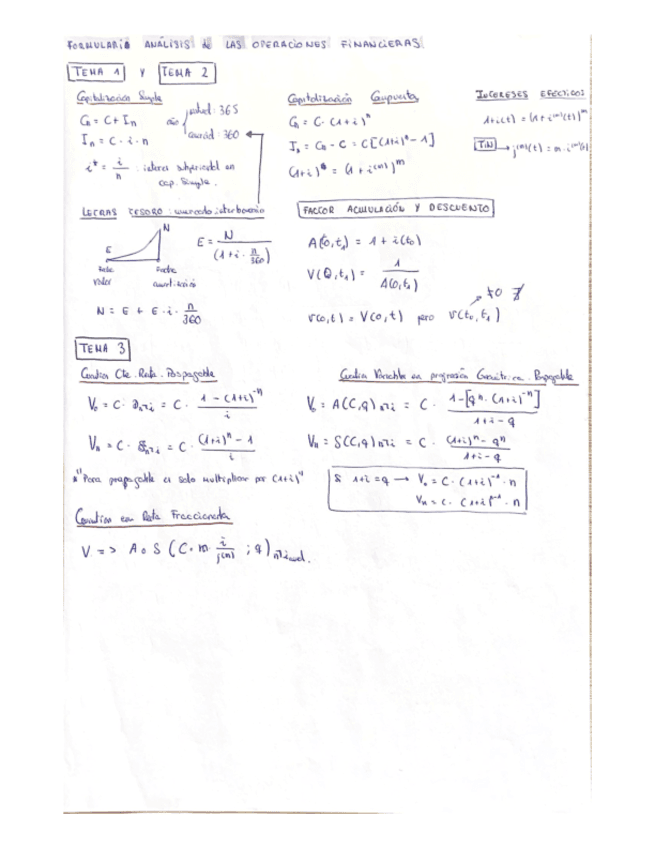 FORMULARIO ANÁLISIS de LAS OPERACIONES FINANCIERAS
TEMA 1 y TEMA 2
Capitalización Simple
Cn = C + In
año
natual: 365
comercial: 360
In = C · i · n
i* = i/n : interes subperiodal en
cap. Simple.
Capitalización Compuesta
Cn = C · (1+i)^n
In = Cn - C = C[(1+i)^n - 1]
(1+i)^n = (1 + i^(m))^m
INTERESES EFECTIVOS
1+i(t) = (1 + i^(m)(t))^m
TIN → j^(m)(t) = m · i^(m)(t)
LETRAS TESORO: mercado interbancario
N
E
Fecha valor
Fecha
E = N / (1 + i · n/360)
N = E + E · i · n/360
FACTOR ACUMULACIÓN Y DESCUENTO
A(0,t1) = 1 + i(t0)
V(0,t1) = 1 / A(0,t1)
V(0,t) = V(0,t) pero V(t0,t1)
≠0
TEMA 3
Cuantia Cte. Renta. Pospagable
V0 = C · a n¬i = C · (1 - (1+i)^-n) / i
Vn = C · S n¬i = C · ((1+i)^n - 1) / i
Para prepagable es solo multiplicar por (1+i)^1
Cuantia Variable en progresión Geométrica. Pospagable
V0 = A(C,q) n¬i = C · (1 - [q^n · (1+i)^-n]) / (1+i-q)
Vn = S(C,q) n¬i = C · ((1+i)^n - q^n) / (1+i-q)
Si 1+i = q → V0 = C · (1+i)^-1 · n
Vn = C · (1+i)^n-1 · n
Cuantias en Renta Fraccionada
V => A o S (C · m · i/j(m) ; q) n¬i